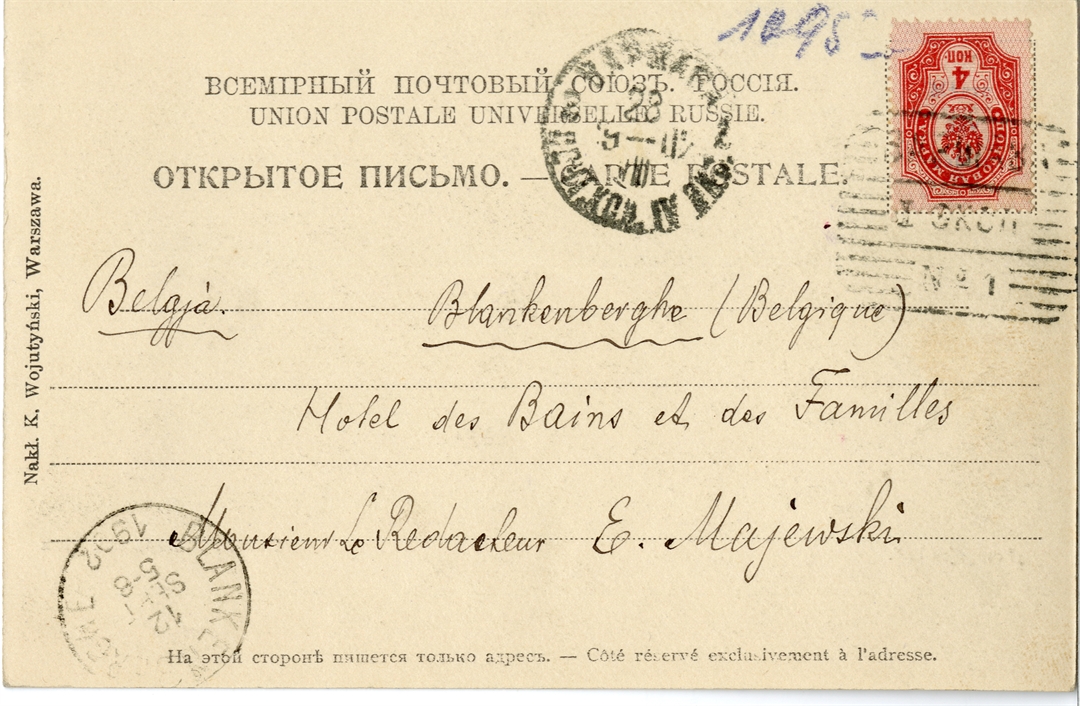 1098
ВСЕМІРНЫЙ ПОЧТОВЫЙ СОЮЗЪ. РОССІЯ.
UNION POSTALE UNIVERSELLE. RUSSIE.
ОТКРЫТОЕ ПИСЬМО. — CARTE POSTALE.
4 КОП
ПОЧТОВАЯ МАРКА
ВАРШАВА
23
VIII
№ 1
Belgjà.
Blankenberghe (Belgique)
Hotel des Bains et des Familles
Monsieur Le Redacteur E. Majewski
Nakł. K. Wojutyński, Warszawa.
BLANK
1902
На этой сторонѣ пишется только адресъ. — Côté réservé exclusivement à l'adresse.